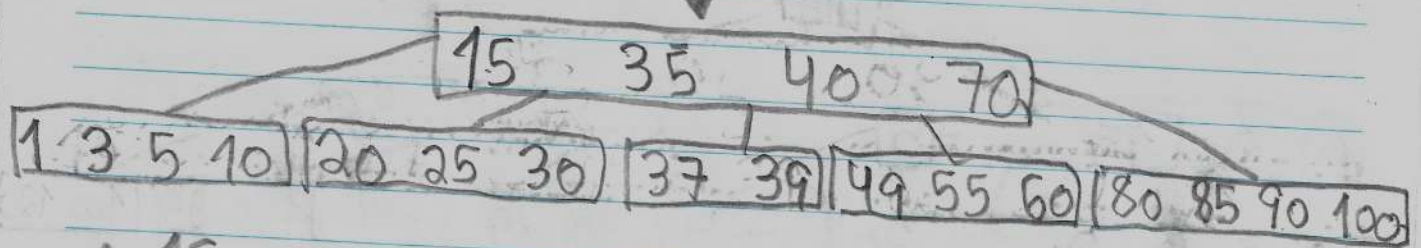 15 35 40 70
1 3 5 10 20 25 30 37 39 49 55 60 80 85 90 100